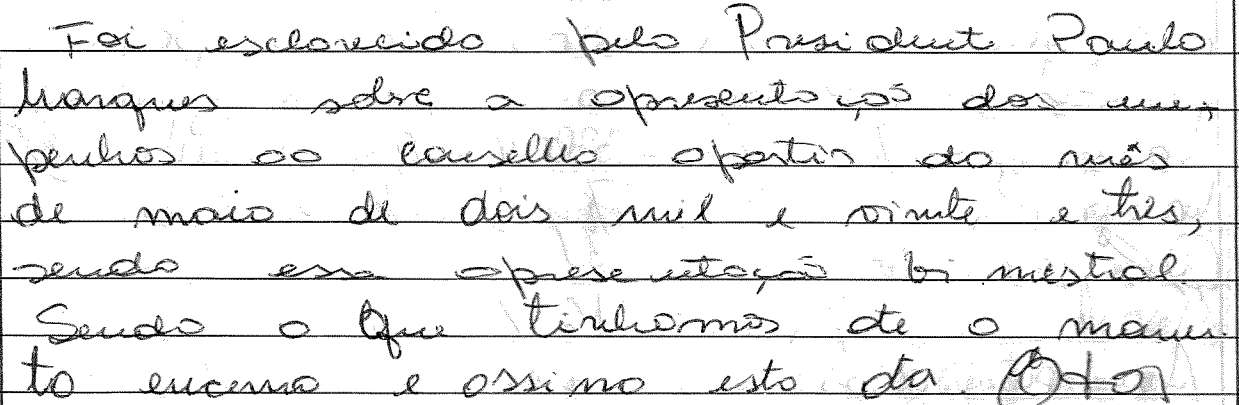 Foi esclarecido pelo President Paulo
Marques sobre a apresentação dos em,
penhos ao conselho apartir do mês
de maio de dois mil e vinte e três,
sendo essa apresentação bi mestral
Sendo o Que tinhamos de o momen
to encerro e assino esta da Ata